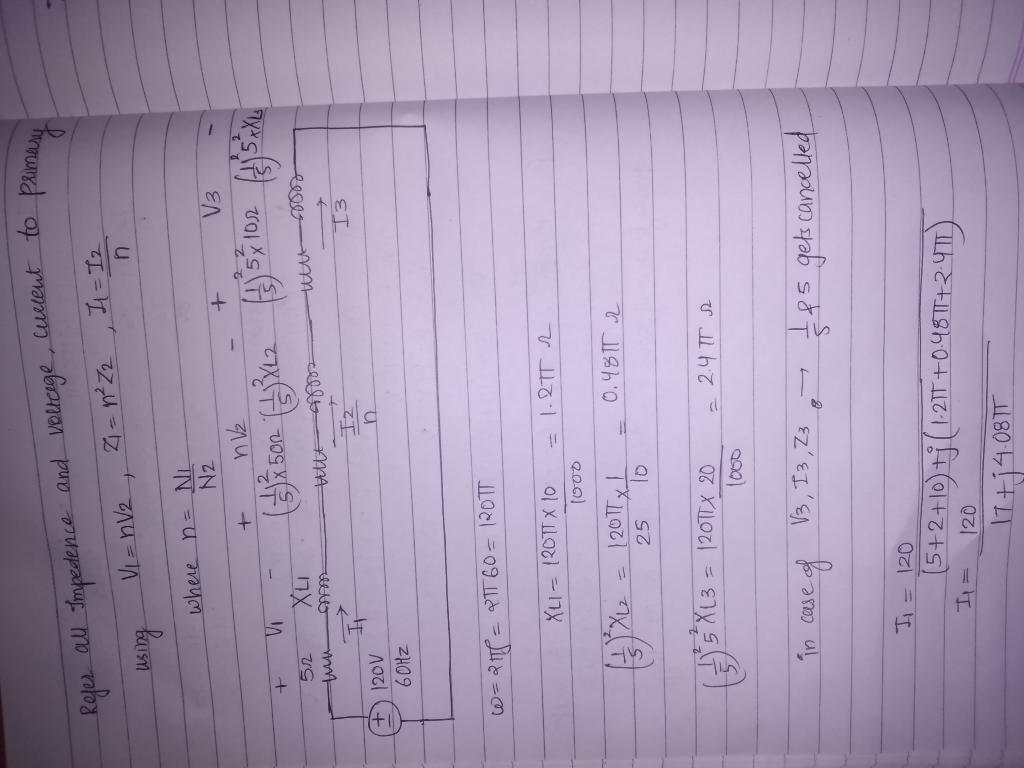 Refer all Impedence and voltage, current to Pamuary
using V1 = nV2 , Z1 = n²Z2 , I1 = I2/n
where n = N1/N2
+ V1 - + nV2 - + V3 -
5Ω XL1 (1/5)² x 50Ω (1/5)² XL2 (1/5)² 5² x 10Ω (1/5)² 5² x XL3
I1 I2/n I3
120V
60Hz
ω = 2πf = 2π60 = 120π
XL1 = 120π x 10/1000 = 1.2π Ω
(1/5)² XL2 = 120π/25 x 1/10 = 0.48π Ω
(1/5)² 5² XL3 = 120π x 20/1000 = 2.4π Ω
in case of V3, I3, Z3 → 1/5 & 5 gets cancelled
I1 = 120/((5+2+10)+j(1.2π+0.48π+2.4π))
I1 = 120/(17+j4.08π)